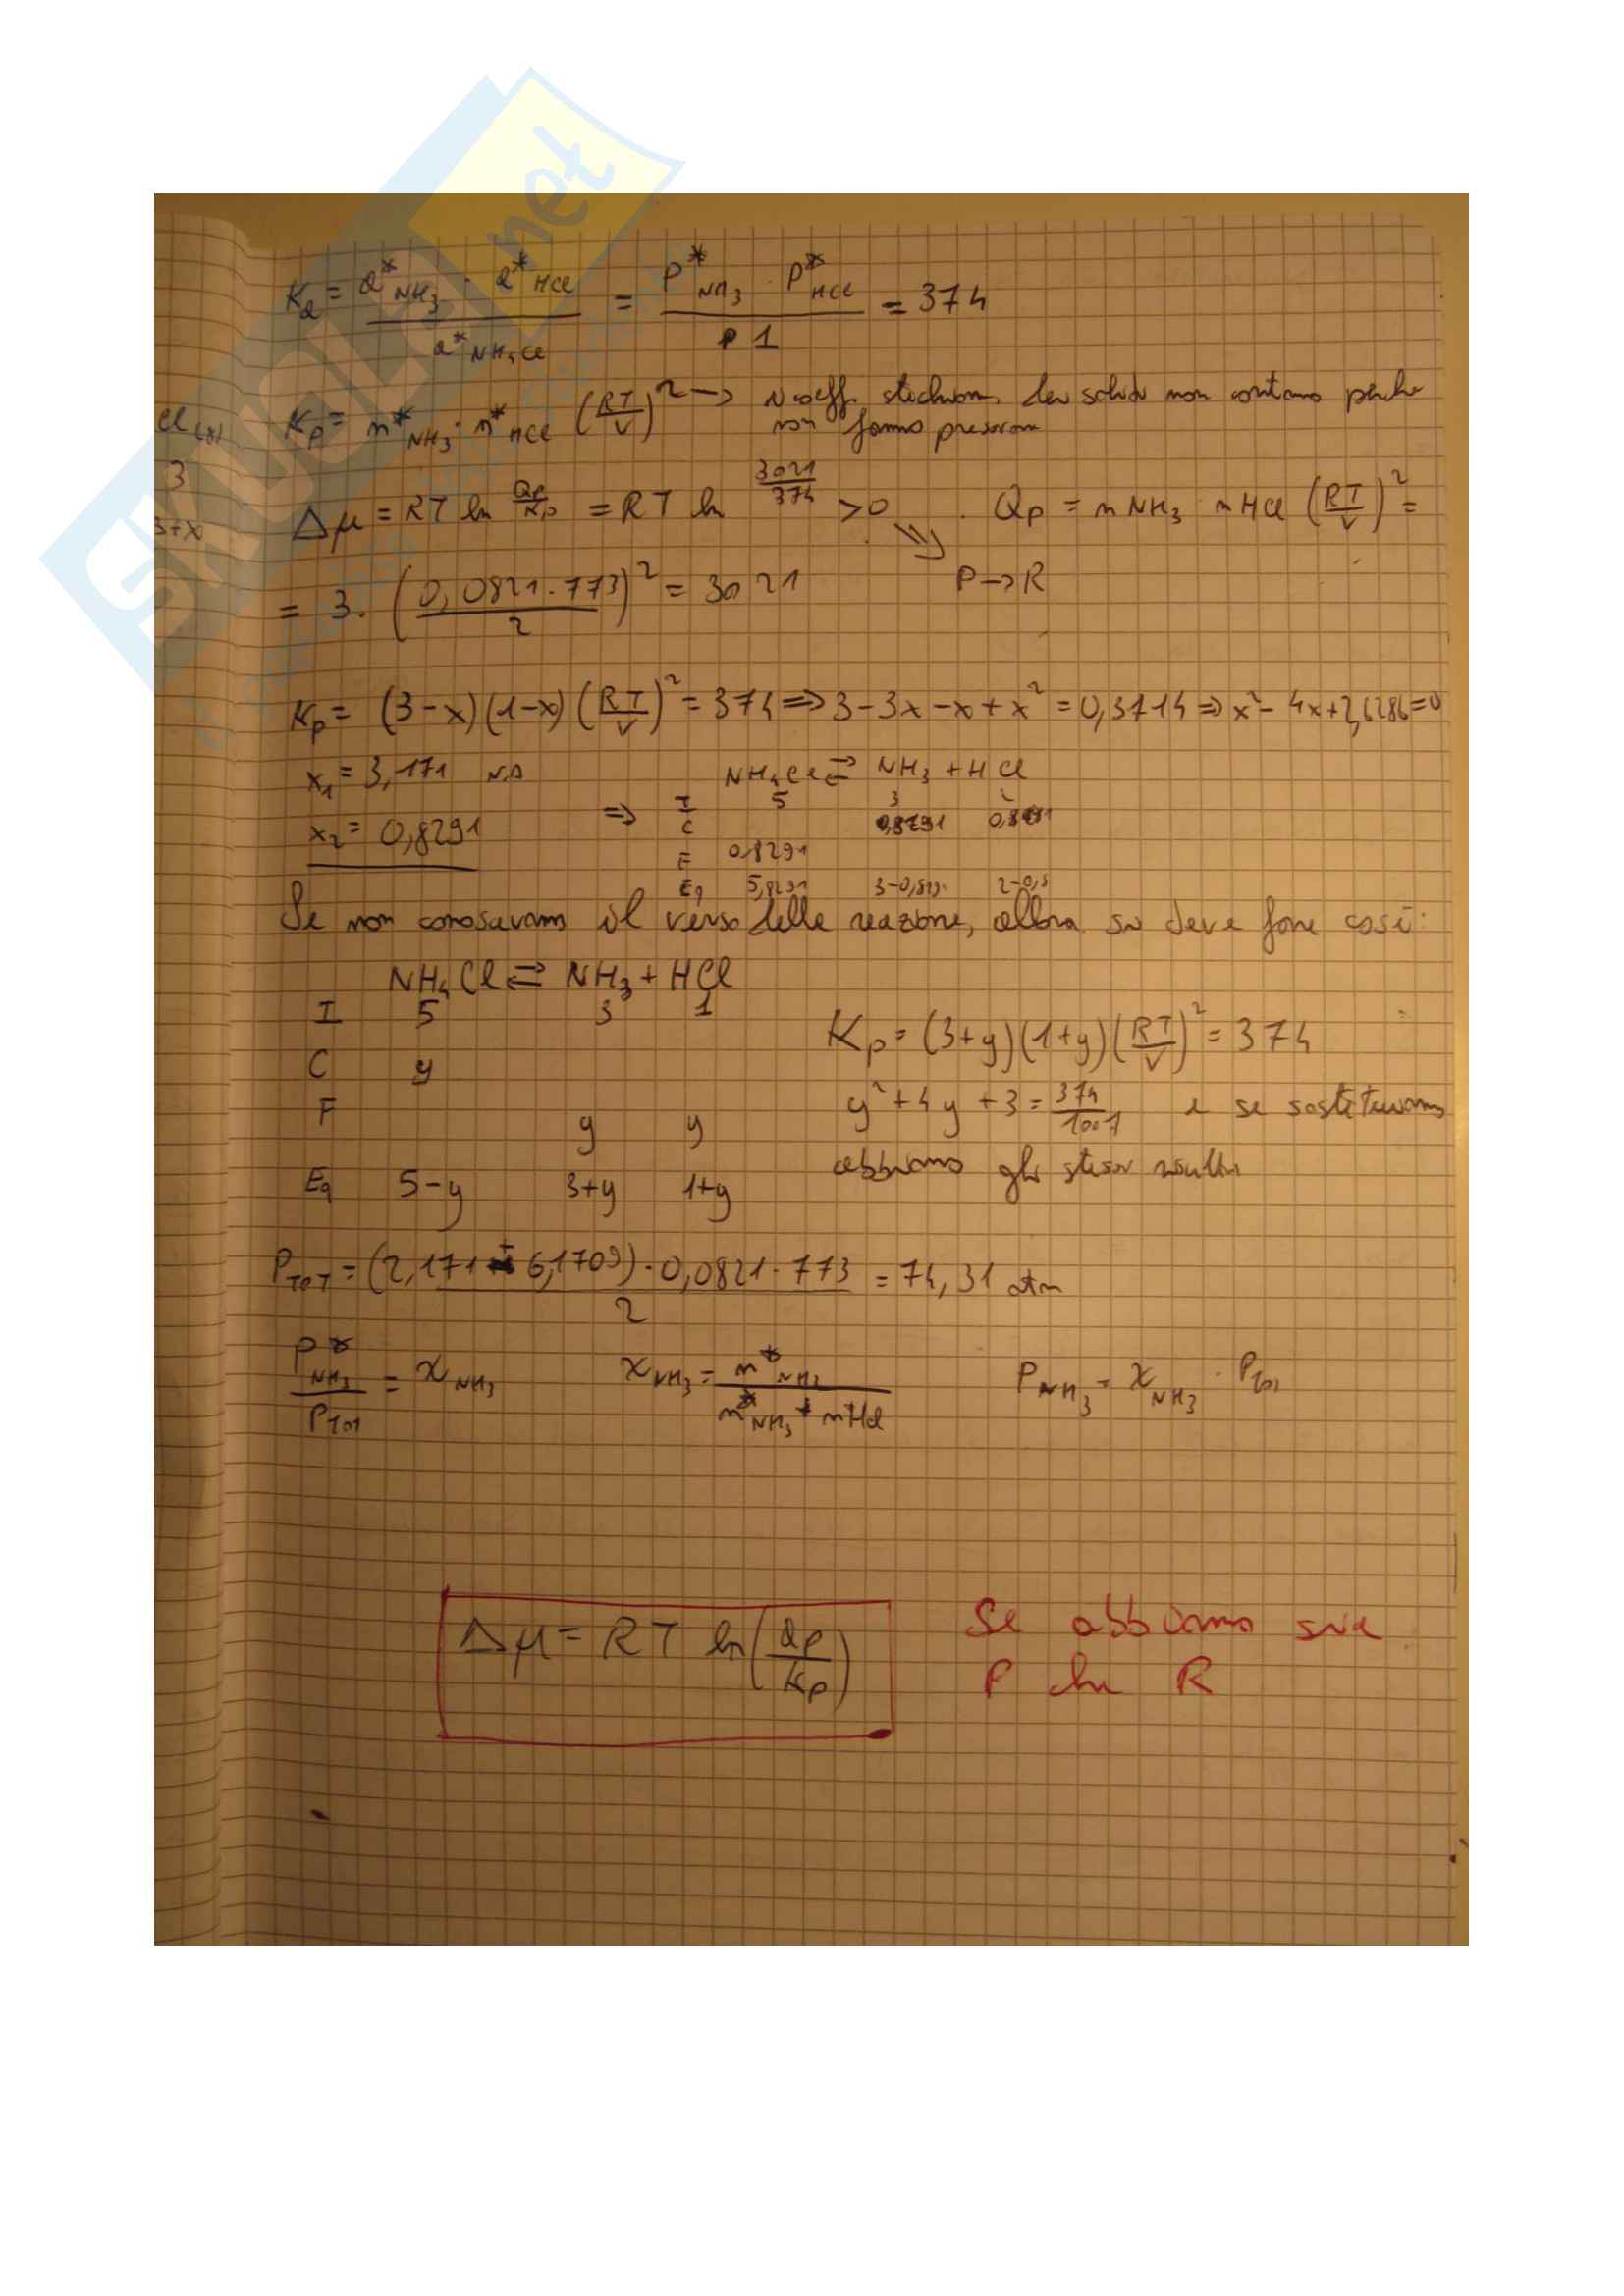 SKUOLA.net
Ka = a*NH3 · a*HCl / a*NH4Cl = P*NH3 · P*HCl / 1 = 374
Cl(s) Kp = n*NH3 · n*HCl (RT/V)^2 → I coeff. stechiom. del solido non contano perché
non fanno pressione
3
3+x Δμ = RT ln Qp/Kp = RT ln 3021/374 >0 . Qp = nNH3 · nHCl (RT/V)^2 =
P→R
= 3 · (0,0821·773/2)^2 = 3021
Kp = (3-x)(1-x)(RT/V)^2 = 374 ⇒ 3-3x-x+x^2 = 0,3714 ⇒ x^2-4x+2,6286=0
x1 = 3,171 N.A NH4Cl ⇄ NH3 + HCl
x2 = 0,8291 ⇒ I 5 3
C 0,8291
F 0,8291
Eq 5,8291
Se non conoscevamo il verso delle reazione, allora si deve fare così:
NH4Cl ⇄ NH3 + HCl
I 5 3 1
Kp = (3+y)(1+y)(RT/V)^2 = 374
C y
y^2+4y+3 = 374/1007 e se sostituiamo
F y y
abbiamo gli stessi risultati
Eq 5-y 3+y 1+y
PTOT = (2,171 + 6,1709) · 0,0821 · 773 / 2 = 74,31 atm
P*NH3 / PTOT = xNH3 xNH3 = n*NH3 / n*NH3 + n*HCl PNH3 = xNH3 · PTOT
Δμ = RT ln(Qp/Kp) Se abbiamo sia
P che R